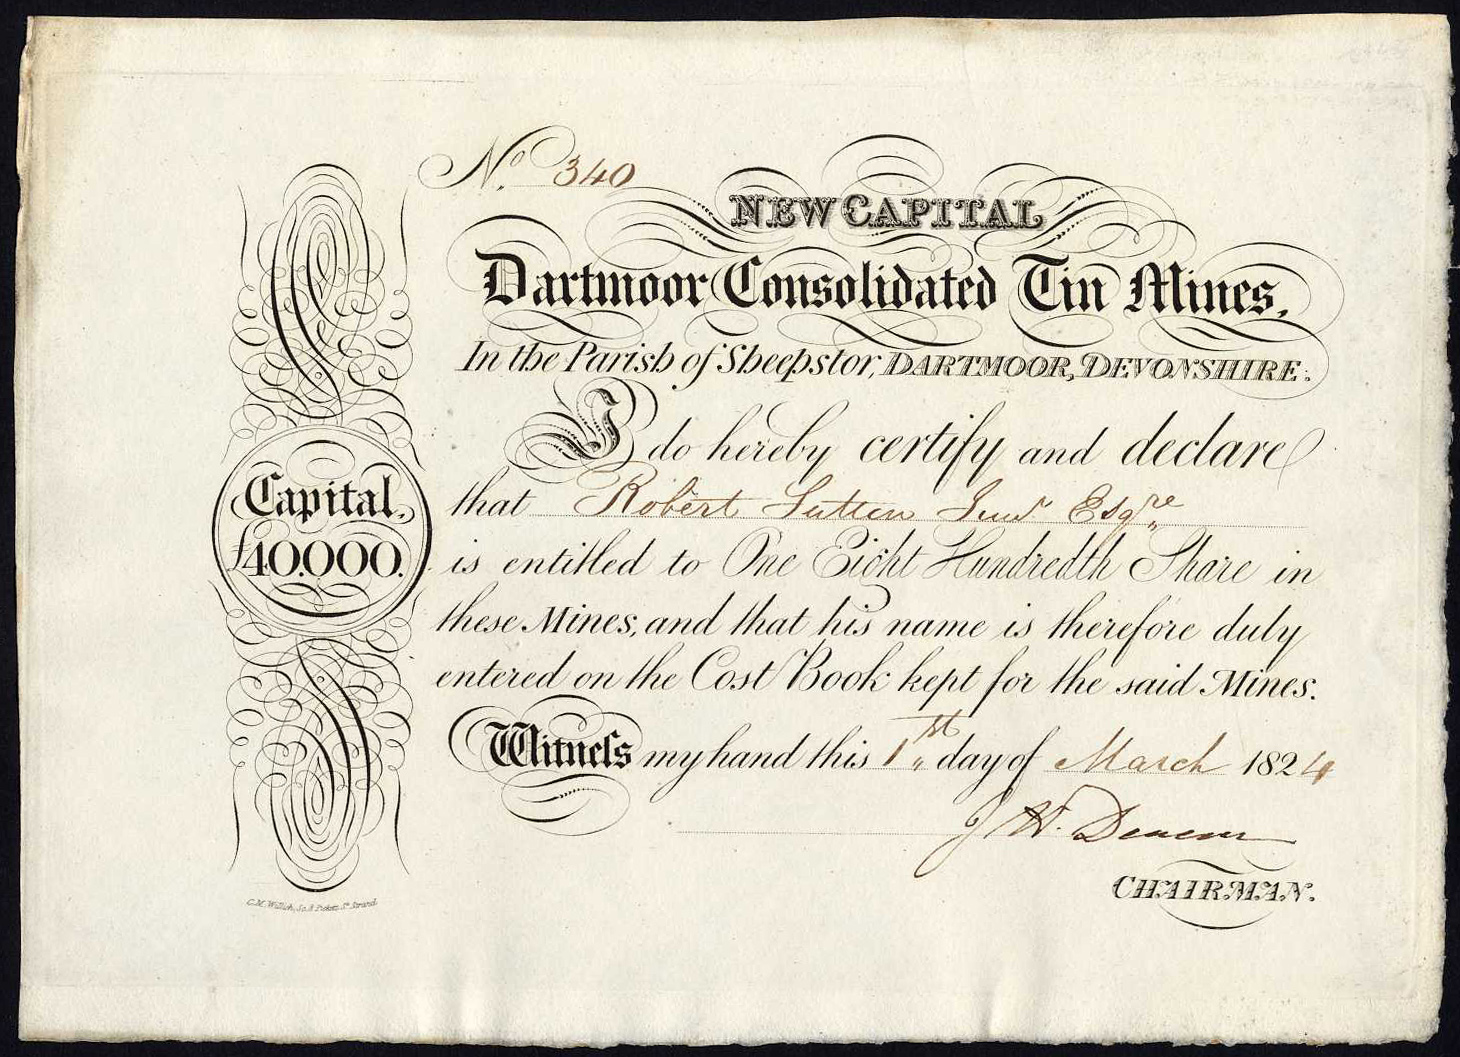 No. 340
NEW CAPITAL
Dartmoor Consolidated Tin Mines,
In the Parish of Sheepstor, DARTMOOR, DEVONSHIRE.
I do hereby certify and declare
that Robert Sutton Junr Esqre
is entitled to One Eight Hundredth Share in
these Mines, and that his name is therefore duly
entered on the Cost Book kept for the said Mines.
Witness my hand this 1st day of March 1824
J W.
CHAIRMAN.
Capital.
£40.000.
C.M. Willich, Sc. 8 Pickett St. Strand